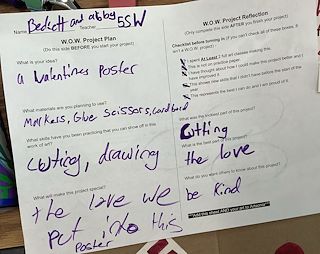 Name Beckett and abby Teacher 5SW
W.O.W. Project Plan
(Do this side BEFORE you start your project)
What is your idea?
a valentines poster
What materials are you planning to use?
Markers, Glue scissors, cardbord
What skills have you been practicing that you can show off in this
work of art?
cutting, drawing
What will make this project special?
the love we
put into this
poster
W.O.W. Project Reflection
(Only complete this side AFTER you finish your project)
Checklist before turning in (If you can't check all of these boxes, it
isn't a W.O.W. project)
I spent At Least 2 full art classes making this.
This is not on practice paper
I have thought about how I could make this project better and
have improved it.
This shows new skills that I didn't have before the start of the
year
This represents the best I can do and I am proud of it.
What was the hardest part of this project?
Cutting
What is the best part of this project?
the love
What do you want others to know about this project?
be kind